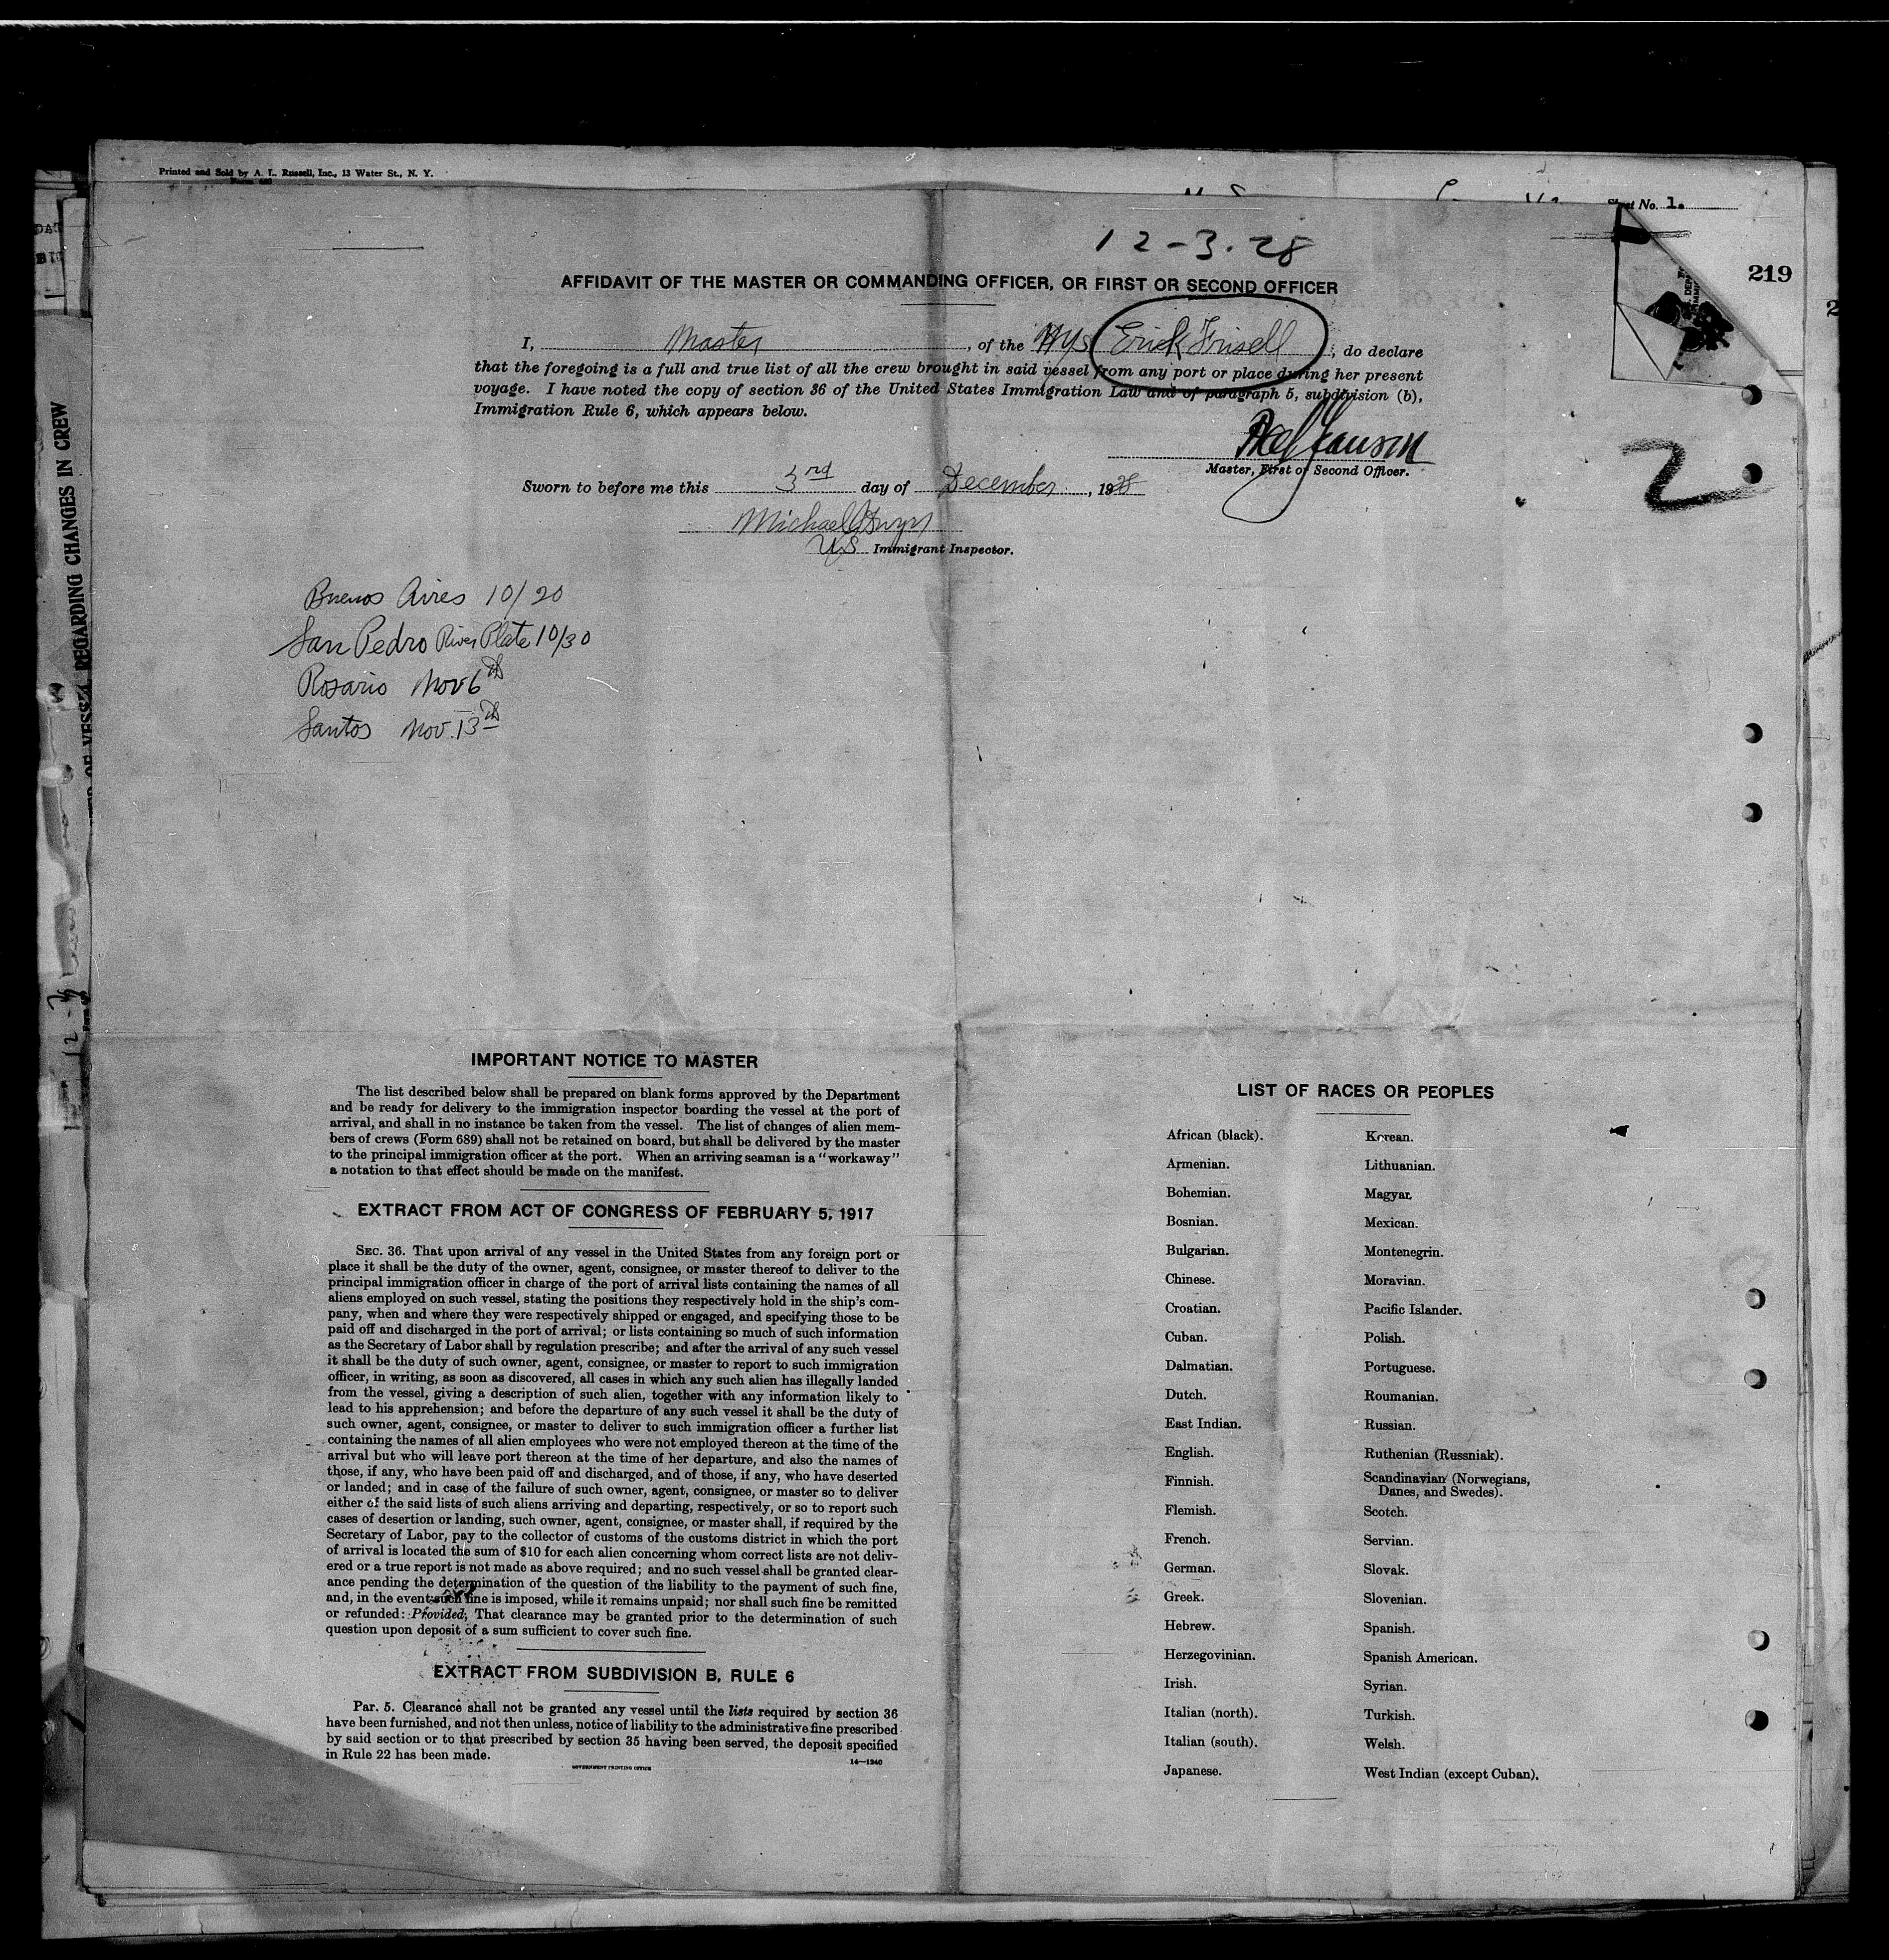 Printed and Sold by A. L. Russell, Inc., 13 Water St., N. Y.
Sheet No. 1.
12-3.28
219
AFFIDAVIT OF THE MASTER OR COMMANDING OFFICER, OR FIRST OR SECOND OFFICER
I, Master, of the M/S Erick Frisell, do declare
that the foregoing is a full and true list of all the crew brought in said vessel from any port or place during her present
voyage. I have noted the copy of section 36 of the United States Immigration Law and of paragraph 5, subdivision (b),
Immigration Rule 6, which appears below.
Master, First or Second Officer.
2
Sworn to before me this 3rd day of December, 1928
Michael
US Immigrant Inspector.
Buenos Aires 10/20
San Pedro River Plate 10/30
Rosario Nov 6th
Santos Nov. 13th
REGARDING CHANGES IN CREW
IMPORTANT NOTICE TO MASTER
The list described below shall be prepared on blank forms approved by the Department
and be ready for delivery to the immigration inspector boarding the vessel at the port of
arrival, and shall in no instance be taken from the vessel. The list of changes of alien mem-
bers of crews (Form 689) shall not be retained on board, but shall be delivered by the master
to the principal immigration officer at the port. When an arriving seaman is a "workaway"
a notation to that effect should be made on the manifest.
EXTRACT FROM ACT OF CONGRESS OF FEBRUARY 5, 1917
SEC. 36. That upon arrival of any vessel in the United States from any foreign port or
place it shall be the duty of the owner, agent, consignee, or master thereof to deliver to the
principal immigration officer in charge of the port of arrival lists containing the names of all
aliens employed on such vessel, stating the positions they respectively hold in the ship's com-
pany, when and where they were respectively shipped or engaged, and specifying those to be
paid off and discharged in the port of arrival; or lists containing so much of such information
as the Secretary of Labor shall by regulation prescribe; and after the arrival of any such vessel
it shall be the duty of such owner, agent, consignee, or master to report to such immigration
officer, in writing, as soon as discovered, all cases in which any such alien has illegally landed
from the vessel, giving a description of such alien, together with any information likely to
lead to his apprehension; and before the departure of any such vessel it shall be the duty of
such owner, agent, consignee, or master to deliver to such immigration officer a further list
containing the names of all alien employees who were not employed thereon at the time of the
arrival but who will leave port thereon at the time of her departure, and also the names of
those, if any, who have been paid off and discharged, and of those, if any, who have deserted
or landed; and in case of the failure of such owner, agent, consignee, or master so to deliver
either of the said lists of such aliens arriving and departing, respectively, or so to report such
cases of desertion or landing, such owner, agent, consignee, or master shall, if required by the
Secretary of Labor, pay to the collector of customs of the customs district in which the port
of arrival is located the sum of $10 for each alien concerning whom correct lists are not deliv-
ered or a true report is not made as above required; and no such vessel shall be granted clear-
ance pending the determination of the question of the liability to the payment of such fine,
and, in the event such fine is imposed, while it remains unpaid; nor shall such fine be remitted
or refunded: Provided, That clearance may be granted prior to the determination of such
question upon deposit of a sum sufficient to cover such fine.
EXTRACT FROM SUBDIVISION B, RULE 6
Par. 5. Clearance shall not be granted any vessel until the lists required by section 36
have been furnished, and not then unless, notice of liability to the administrative fine prescribed
by said section or to that prescribed by section 35 having been served, the deposit specified
in Rule 22 has been made.
GOVERNMENT PRINTING OFFICE 14—1240
LIST OF RACES OR PEOPLES
African (black). Korean.
Armenian. Lithuanian.
Bohemian. Magyar.
Bosnian. Mexican.
Bulgarian. Montenegrin.
Chinese. Moravian.
Croatian. Pacific Islander.
Cuban. Polish.
Dalmatian. Portuguese.
Dutch. Roumanian.
East Indian. Russian.
English. Ruthenian (Russniak).
Finnish. Scandinavian (Norwegians,
Danes, and Swedes).
Flemish. Scotch.
French. Servian.
German. Slovak.
Greek. Slovenian.
Hebrew. Spanish.
Herzegovinian. Spanish American.
Irish. Syrian.
Italian (north). Turkish.
Italian (south). Welsh.
Japanese. West Indian (except Cuban).